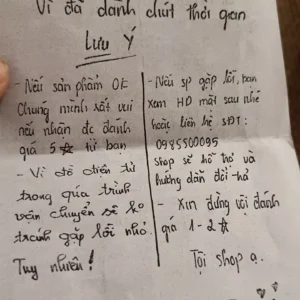 Vì đã dành chút thời gian
Lưu Ý
- Nếu sản phẩm OK
Chúng mình rất vui
nếu nhận đc đánh
giá 5☆ từ bạn
- Vì đồ điện tử
trong quá trình
vận chuyển sẽ ko
tránh gặp lỗi nhỏ.
Tuy nhiên!
- Nếu sp gặp lỗi, bạn
xem HD mặt sau nhé
hoặc liên hệ SĐT:
0985500095
shop sẽ hỗ trợ và
hướng dẫn đổi trả
- Xin đừng vội đánh
giá 1-2☆
Tội shop ạ.